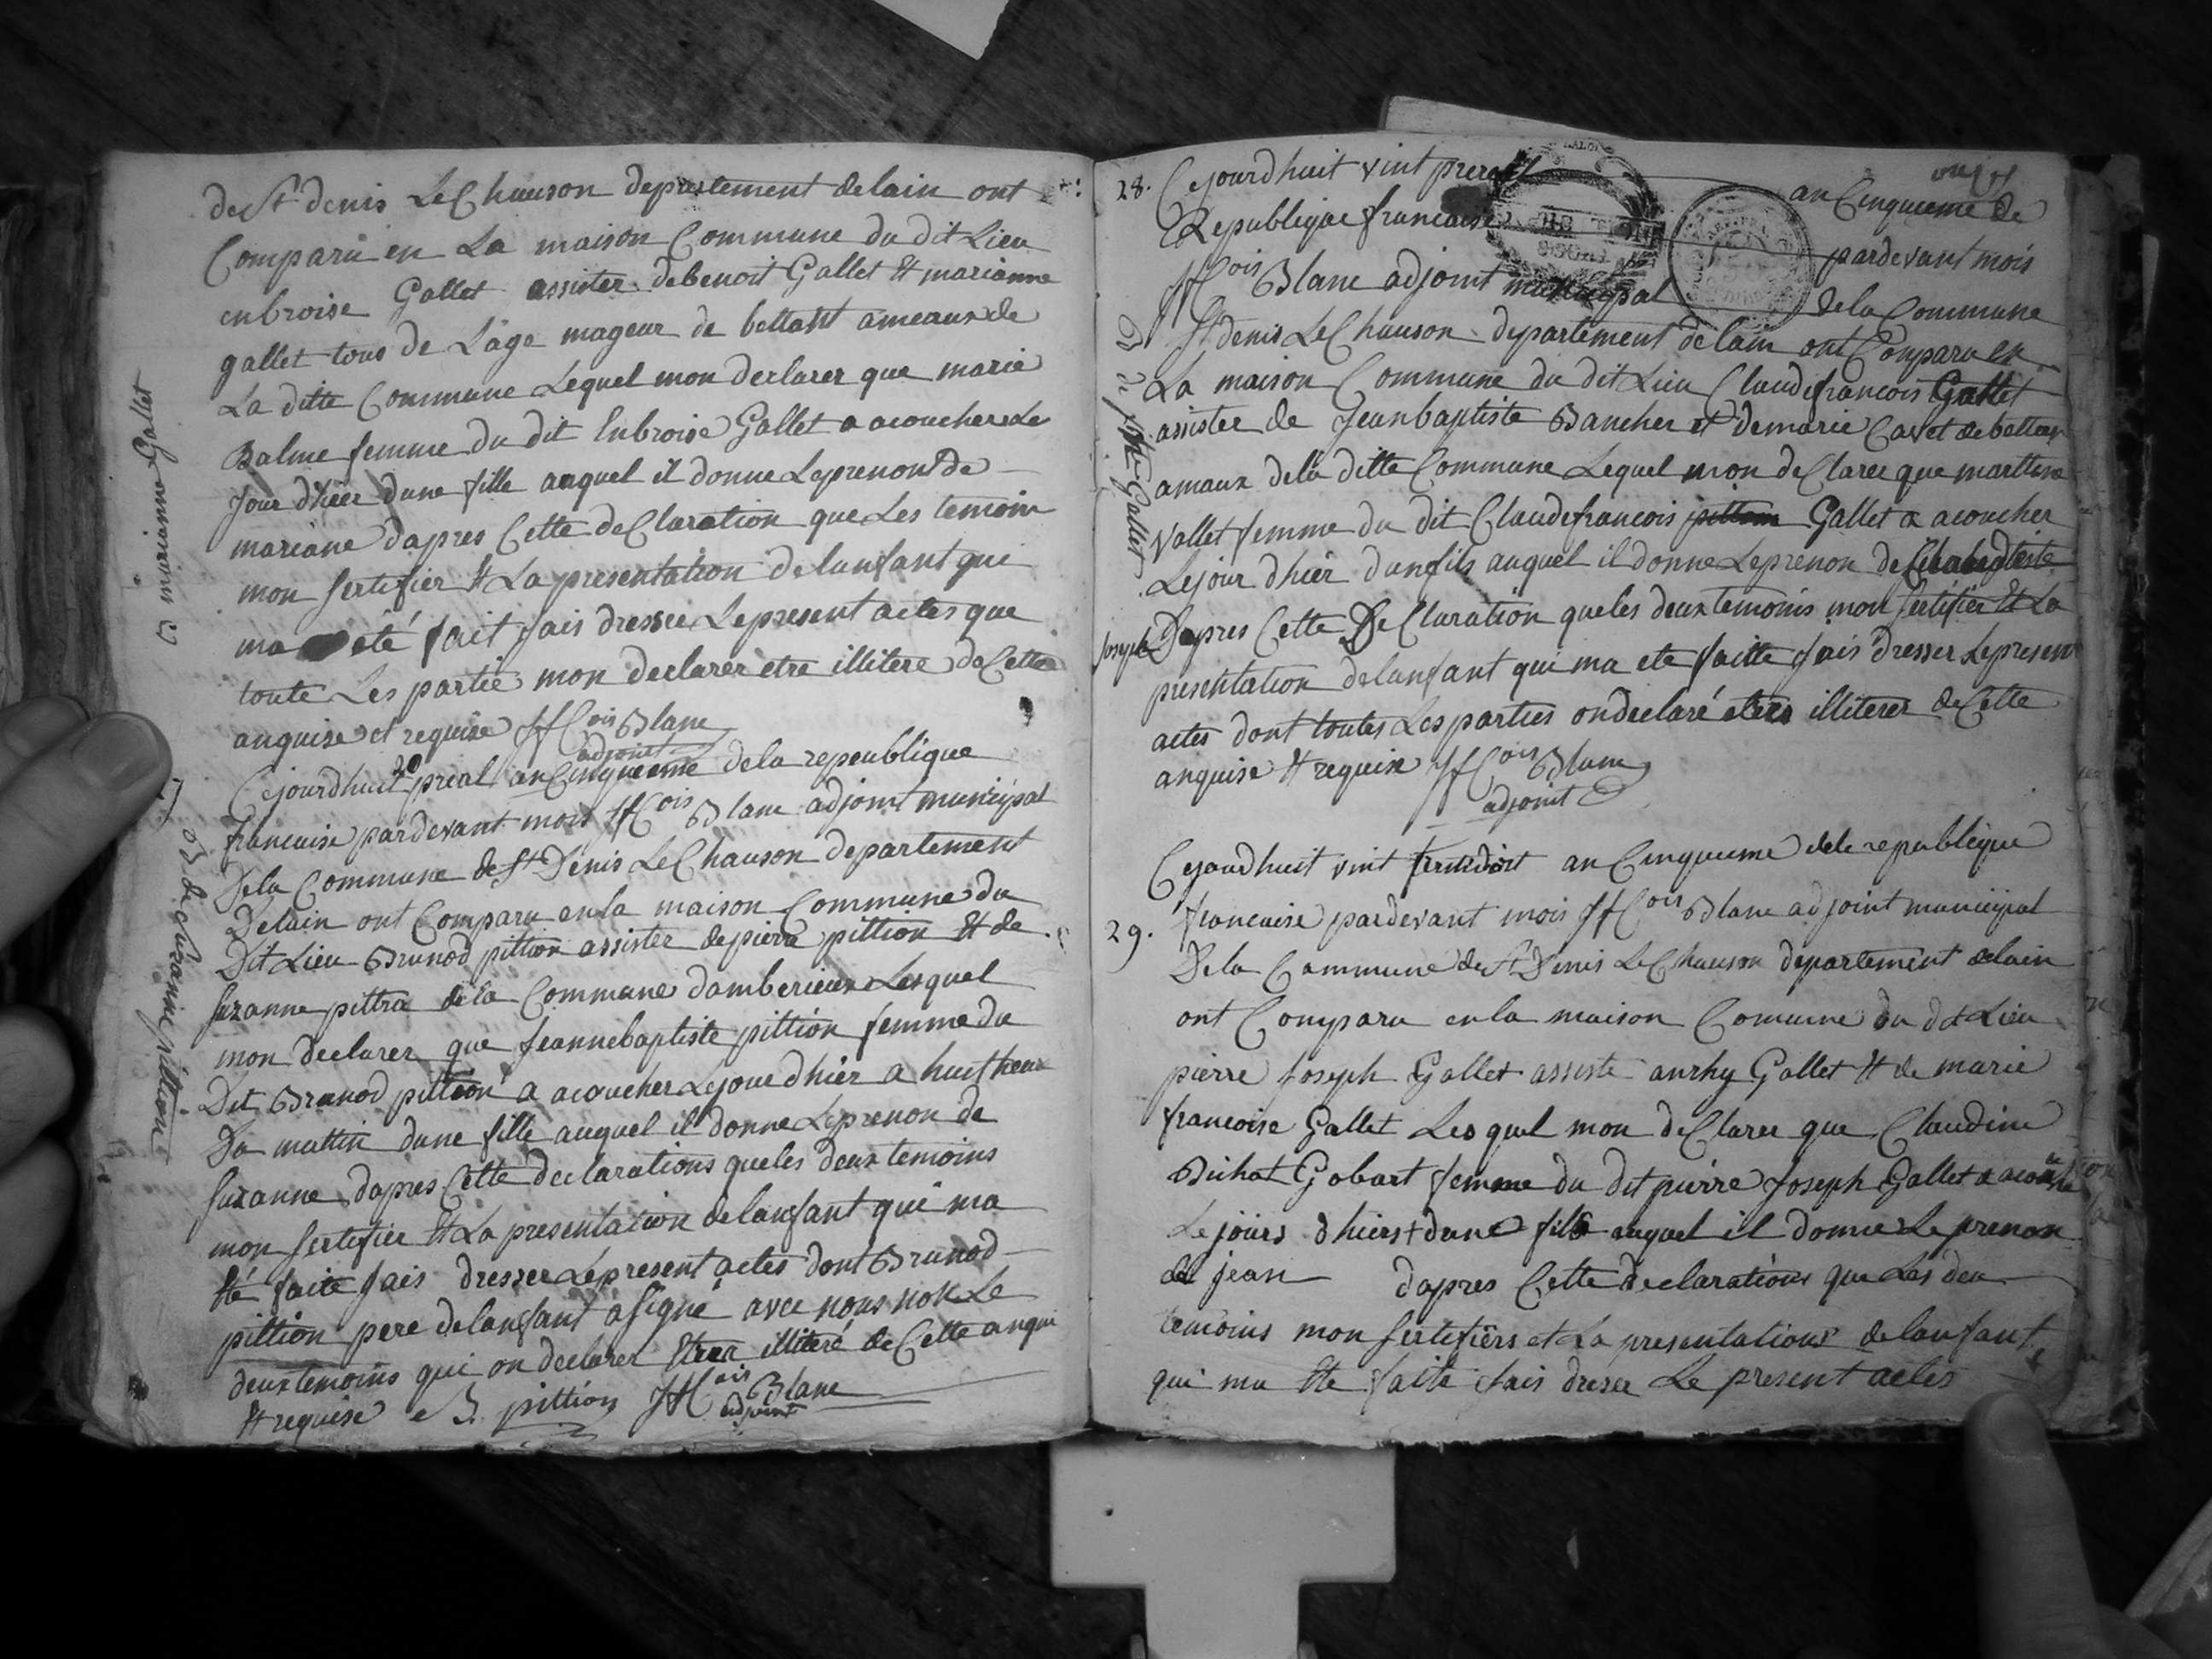 de St denis Le Chauson departement delain ont
Comparu en La maison Commune du dit Lieu
enbroise Gallet assister debenoit Gallet et marianne
gallet tous de Lâge mageur de bettant ameaux de
La ditte Commune Lequel mon declarer que marie
Balme femme du dit Enbroise Gallet a acoucher Le
Jour dhier dune fille auquel il donne Leprenont de
mariane dapres Cette deClaration que Les temoin
mon Sertifier et La presentation delanfant qui
ma eté fait Jais dresser Lepresent actes que
toute Les partie mon declarer etre illitere de Cette
anquise et requise ff Cois Blanc
adjoint
Cejourdhuit 20 preal an Cinqueme dela repeublique
francaise pardevant mois ff Cois Blanc adjoint municipal
Dela Commune de St Denis Le Chauson departement
Delain ont Comparu enla maison Commune du
Dit Lieu Brunod pittion assister depierre pittion et de
Suzanne pittra dela Commune damberieux Lesquel
mon declarer que Jeannebaptiste pittion femme du
Dit Brunod pittion a acoucher Lejour dhier a huit heur
Du mattin dune fille auquel il donne Leprenon de
Suzanne dapres Cette declarations queles deux temoins
mon Sertifier et La presentation delanfant qui ma
été faite Jais dresser Lepresent actes dont Brunod
pittion pere delanfant a signé avec nous non Le
deux temoins qui on declarer etre illiteré de Cette anqui
et requise B. pittion ff Cois Blanc
adjoint
marianne Gallet
B de Suzanne pittion
28. Cejourdhuit vint prereal an Cinquieme de
Republique francaise pardevant mois
ff Cois Blanc adjoint municipal de la Commune
St denis Le Chauson departement delain ont Conparu en
La maison Commune du dit Lieu Claudefrancois Gallet
assister de Jeanbaptiste Bancher et demarie Cavet de bettan
amaux dela ditte Commune Lequel mon deClarer que
Vallet femme du dit Claudefrancois pittion Gallet a acoucher
Lejour dhier dunfils auquel il donne Leprenon de
Joseph Dapres Cette DeClaration queles deux temoins mon Sertifier et La
presentation delanfant qui ma ete faitte Jais dresser Lepresen
actes dont toutes Les parties ondeclaré etres illiterer de Cette
anquise et requise ff Cois Blanc
adjoint
B de Gallet
Cejourdhuit vint an Cinquieme dela republique
29. francaise pardevant mois ff Cois Blanc adjoint municipal
Dela Commune de St Denis Le Chauson departement delain
ont Conparu enla maison Comune du dit Lieu
pierre Joseph Gallet assiste Gallet et de marie
francoise Gallet Lesquel mon deClarer que Claudine
Bichat Gobart femme du dit pierre Joseph Gallet a
Le jours dhiers dune fils auquel il donne Le prenon
de jean dapres Cette declarations que Les deu
temoins mon Sertefiers et La presentations delanfant
qui ma ete faite Jais dresser Le present actes